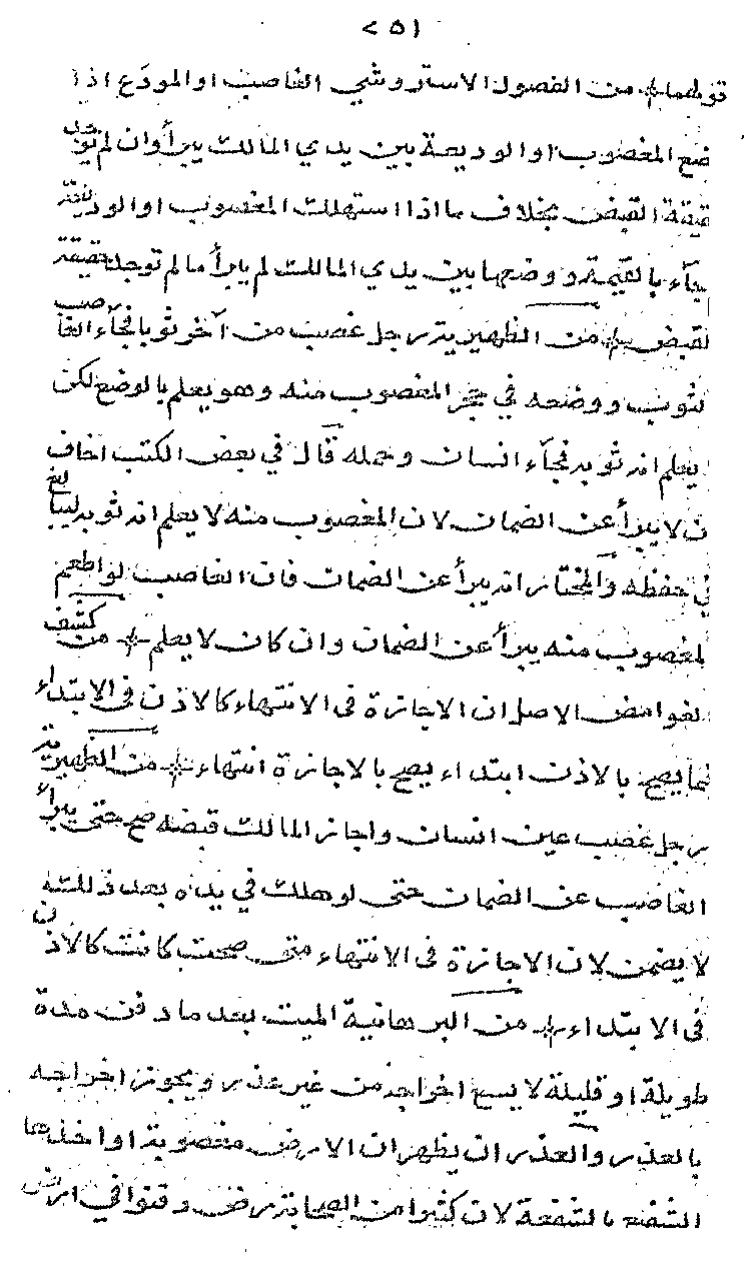 ٢٥١
قولهما من الفصول الاستروشي الغاصب او المودَع اذا
ضع المغصوب او الوديعة بين يدي المالك يبرأ وان لم توجد
قيقة القبض بخلاف ما اذا استهلك المغصوب او الوديعة
جآء بالقيمة ووضعها بين يدي المالك لم يبرأ ما لم توجد حقيقة
لقبض من الظهيرية رجل غصب من آخر ثوبا فجآء الغاصب
لثوب ووضعه في حجر المغصوب منه وهو يعلم بالوضع لكن
يعلم انه ثوبه فجآء انسان وحمله قال في بعض الكتب اخاف
ن لا يبرأ عن الضمان لان المغصوب منه لا يعلم انه ثوبه
في حفظه والمختار انه يبرأ عن الضمان فان الغاصب لو اطعم
لمغصوب منه يبرأ عن الضمان وان كان لا يعلم من كشف
لغوامض الاصل ان الاجازة فى الانتهاء كالاذن فى الابتداء
فما يصح بالاذن ابتداء يصح بالاجازة انتهاء من الظهيرية
رجل غصب عين انسان واجاز المالك قبضه صح حتى يبرأ
الغاصب عن الضمان حتى لو هلك في يده بعد ذلك
لا يضمن لان الاجازة فى الانتهاء متى صحت كانت كالاذن
فى الابتداء من البرهانية الميت بعد ما دفن مدة
طويلة او قليلة لا يسع اخراجه من غير عذر ويجوز اخراجه
بالعذر والعذر ان يظهر ان الارض مغصوبة او اخذها
الشفيع بالشفعة لان كثيرا من الصحابة رض دفنوا في ارض